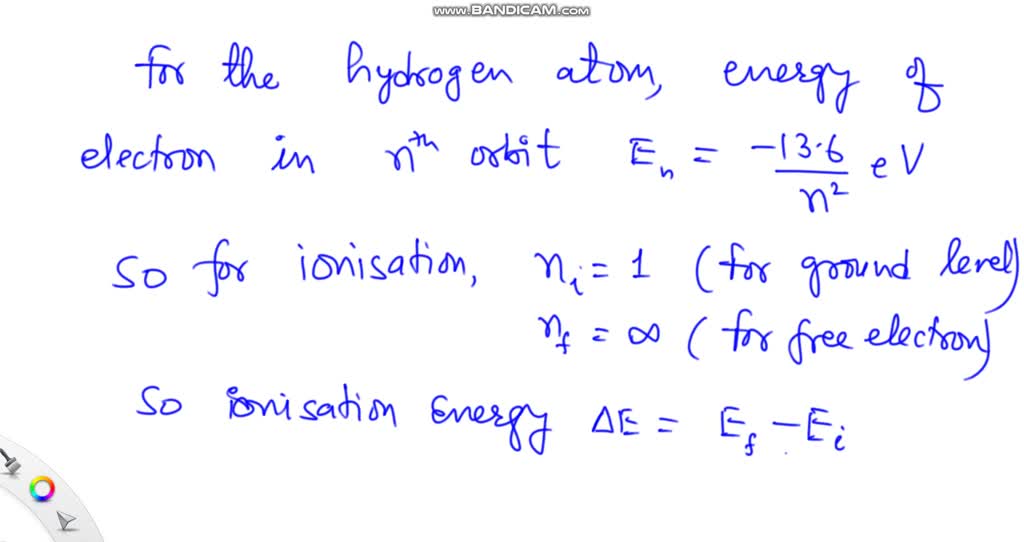 www.BANDICAM.com
for the hydrogen atom, energy of
electron in nᵗʰ orbit Eₙ = -13.6/n² eV
so for ionisation, nᵢ = 1 (for ground level)
n_f = ∞ (for free electron)
so ionisation energy ΔE = E_f - Eᵢ